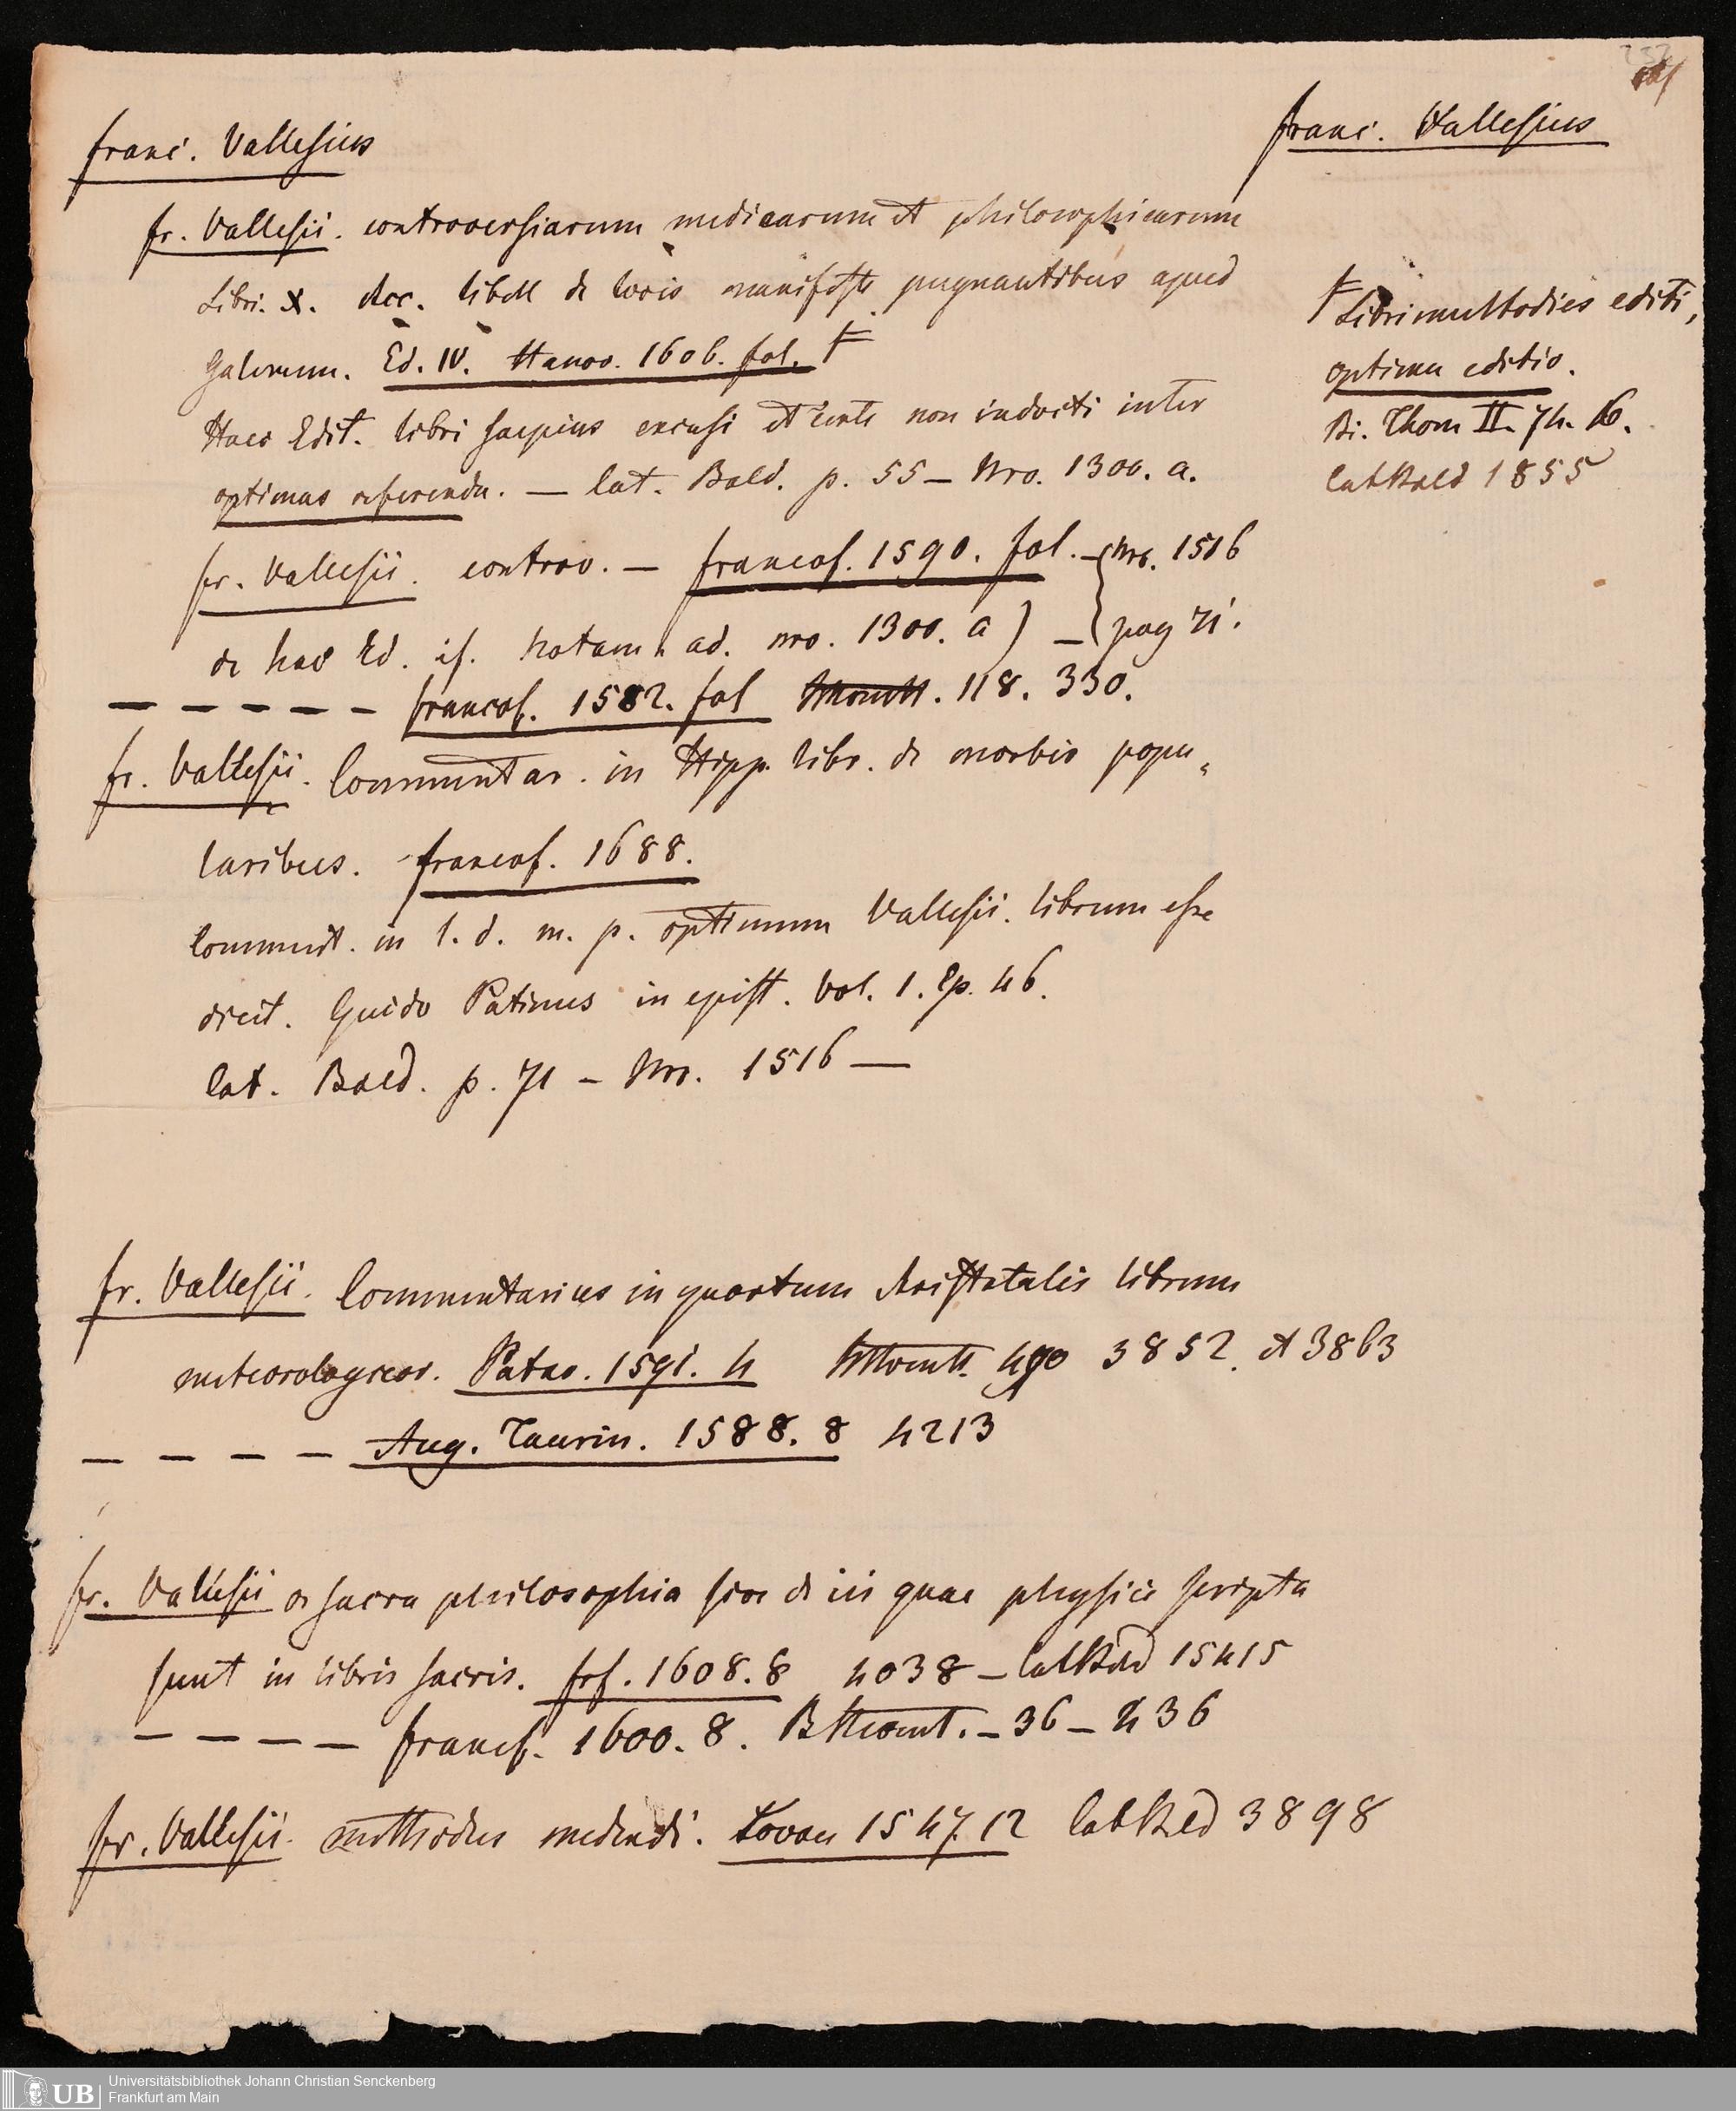 Franc. Vallesius
Franc. Vallesius
Fr. Vallesii. controversiarum medicarum et philosophicarum
Libri. X. Acc. libell de locis manifeste pugnantibus apud
Galenum. Ed. IV. Hanov. 1606. fol. ‡
Haec Edit. libri saepius excusi et certe non indocti inter
optimas referenda. — Cat. Bald. p. 55 — Nro. 1300. a.
‡ Libri multoties editi,
optima editio.
Bi. Thom II. 74. 16.
CatBald 1855
Fr. Vallesii. controv. — Francof. 1590. fol. — Nro. 1516
de hac Ed. cf. Notam ad. nro. 1300. a) — pag 71.
— — — — — Francof. 1582. fol 118. 330.
Fr. Vallesii. Commentar. in Hipp. libr. de morbis popu„
laribus. Francof. 1688.
Comment. in l. d. m. p. optimum Vallesii. librum esse
dicit. Guido Patinus in epist. Vol. 1. Ep. 46.
Cat. Bald. p. 71 — Nro. 1516 —
Fr. Vallesii. Commentarius in quartum Aristotelis librum
meteorologicor. Patav. 1591. 4 490 3852. et 3863
— — — — Aug. Taurin. 1588. 8 4213
Fr. Vallesii de sacra philosophia sive de iis quae physice scripta
sunt in libris sacris. Frf. 1608. 8 4038 — CatBald 15415
— — — — Francf. 1600. 8. — 36 — 436
Fr. Vallesii. methodus medendi. Lovan 1547. 12 CatBald 3898
Universitätsbibliothek Johann Christian Senckenberg
UB Frankfurt am Main